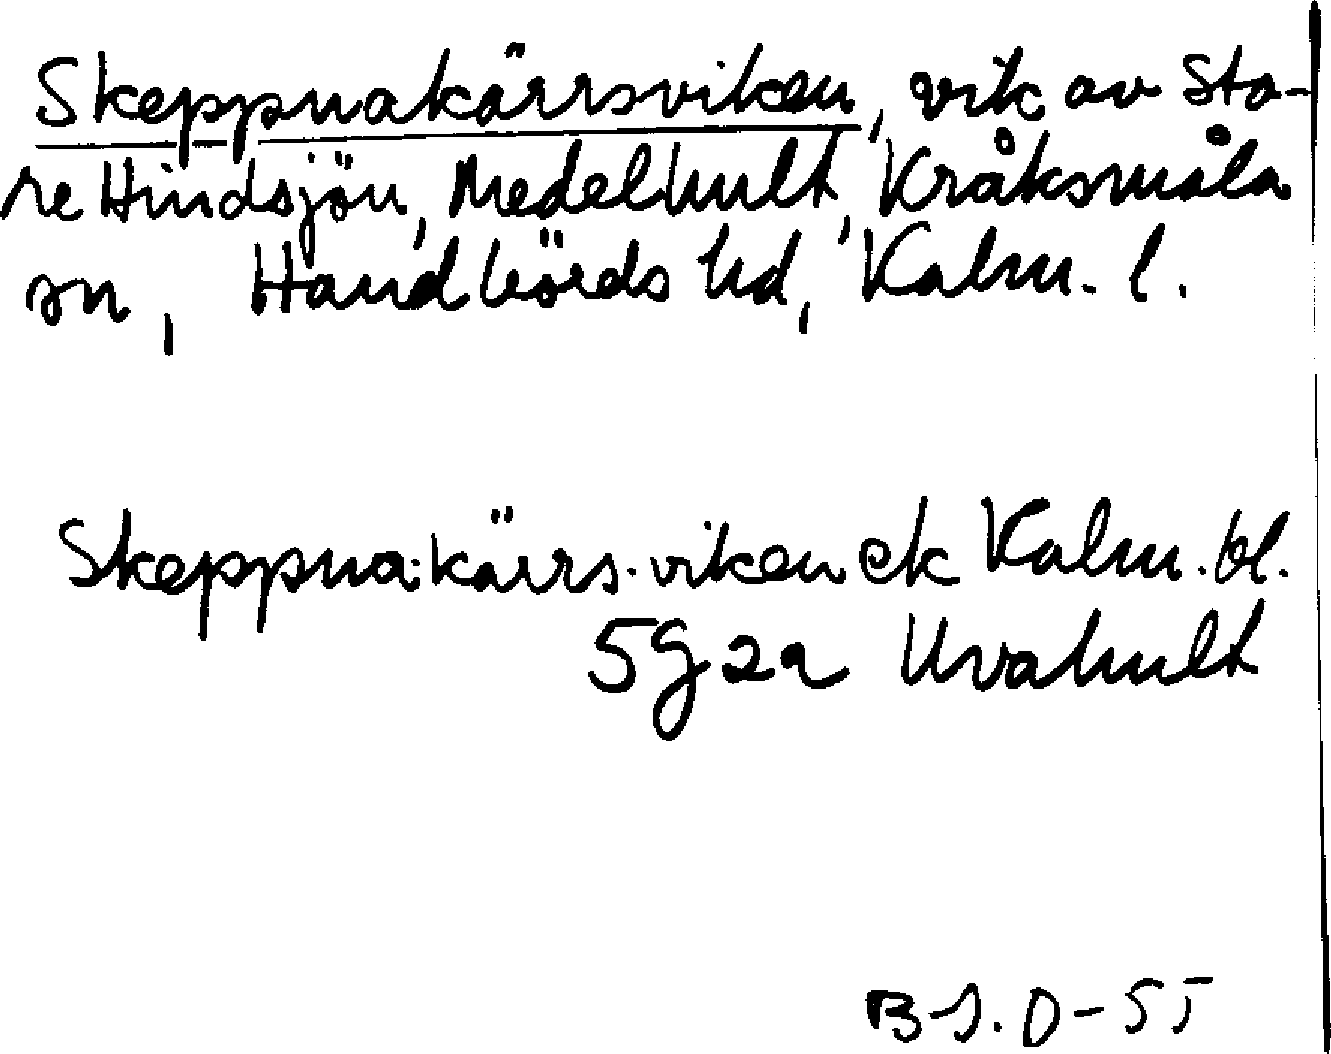 Skeppnakärrsviken, vik av Sto-
re Hindsjön, Medelhult, Kråksmåla
sn, Handbörds hd, Kalm. l.
Skeppna:kärrs.viken ek Kalm. bl.
5g2a Uvahult
B-J.O-55